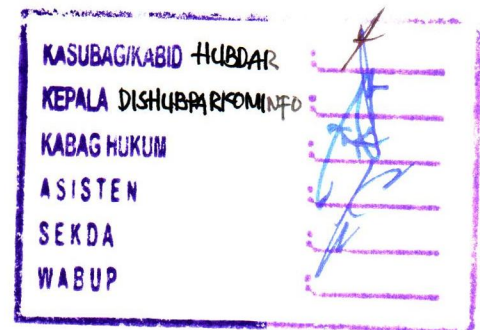 KASUBAG/KABID HUBDAR
KEPALA DISHUBPARKOMINFO
KABAG HUKUM
ASISTEN
SEKDA
WABUP